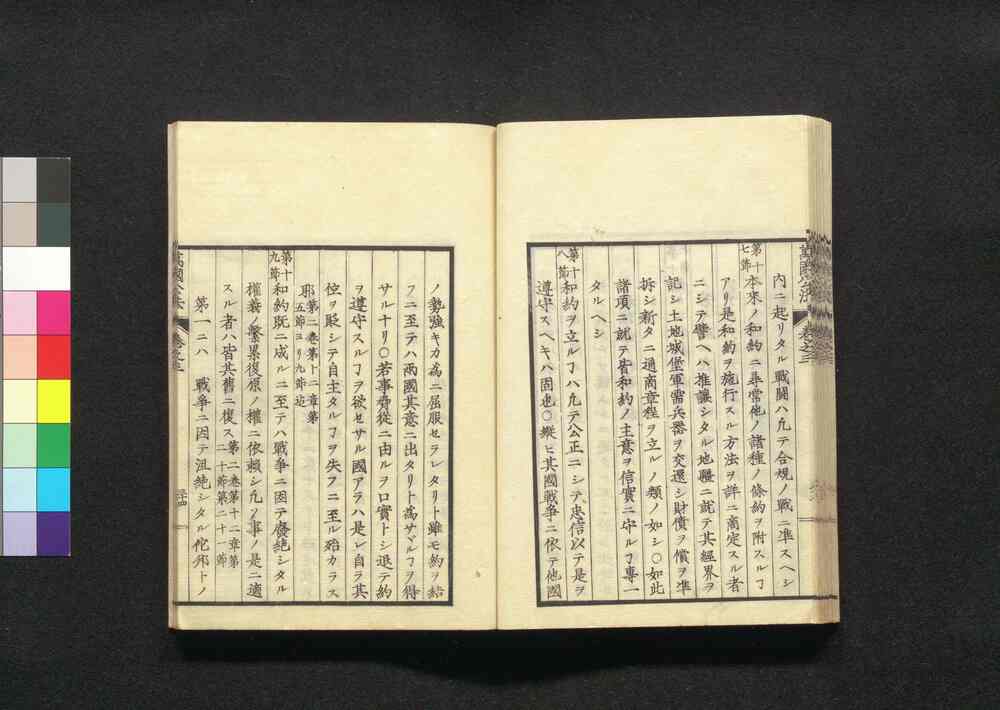 内ニ起リタル戦鬪ハ凡テ合規ノ戰ニ準スヘシ
第十七節 本來ノ和約ニ尋常他ノ諸種ノ條約ヲ附スルヿ
アリ是和約ヲ施行スル方法ヲ詳ニ商定スル者
ニシテ譬ヘハ推讓シタル地疆ニ就テ其經界ヲ
記シ土地城堡軍需兵器ヲ交還シ財債ヲ償ヲ準
拆シ新タニ通商章程ヲ立ルノ類ノ如シ○如此
諸項ニ就テ皆和約ノ主意ヲ信實ニ守ルヿ專一
タルヘシ
第十八節 和約ヲ立ルヿハ凡テ公正ニシテ忠信以テ是ヲ
遵守スヘキハ固也○縱ヒ其國戰爭ニ依テ他國
ノ勢強キカ為ニ屈服セラレタリト雖モ約ヲ結
フニ至テハ兩國其意ニ出タリト為サヾルヿヲ得
サルナリ○若事脅從ニ由ルヲ口實トシ退テ約
ヲ遵守スルヿヲ欲セサル國アラハ是レ自ラ其
位ヲ貶シテ自主タルヿヲ失フニ至ル殆カラス
耶 第二卷第十二章第五節ヨリ九節迄
第十九節 和約既ニ成ルニ至テハ戰爭ニ因テ廢絶シタル
權義ノ繫累復原ノ權ニ依賴シ凡ノ事ノ是ニ適
スル者ハ皆其舊ニ復ス 第二卷第十二章第二十節第二十一節
第一ニハ 戰爭ニ因テ沮絶シタル佗邦トノ
萬國公法 卷之三